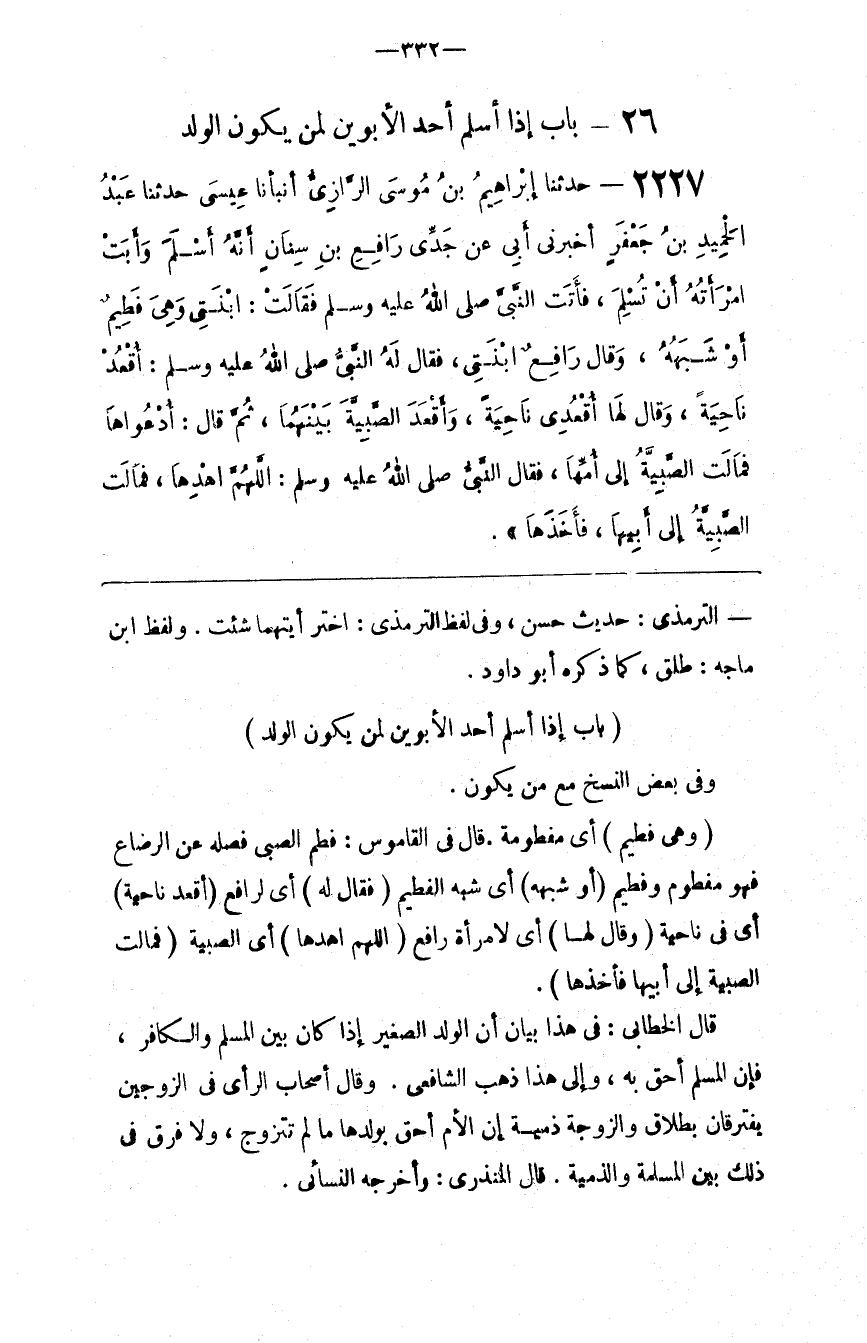 —٣٣٢—
٢٦ – باب إذا أسلم أحد الأبوين لمن يكون الولد
٢٢٢٧ – حدثنا إبْرَاهِيمُ بنُ مُوسَى الرَّازِىُّ أنبأنا عِيسَى حدثنا عَبْدُ
الْحَمِيدِ بنُ جَعْفَرٍ أخبرنى أَبِى عن جَدِّى رَافِعِ بنِ سِنَانٍ أَنَّهُ أَسْلَمَ وَأَبَتْ
امْرَأَتُهُ أَنْ تُسْلِمَ ، فأَتَت النَّبىَّ صلى اللهُ عليه وسلم فَقَالَتْ : ابْنَتِى وَهِىَ فَطِيمٌ
أَوْ شَبَهُهُ ، وَقال رَافِعٌ ابْنَتِى، فقال لَهُ النَّبىُّ صلى اللهُ عليه وسلم : أُقْعُدْ
نَاحِيَةً ، وَقال لَهَا أُقْعُدِى نَاحِيَةً ، وَأَقْعَدَ الصَّبِيَّةَ بَيْنَهُمَا ، ثُمَّ قال : أُدْعُوَاهَا
فَمَالَت الصَّبِيَّةُ إلى أُمِّهَا ، فقال النَّبىُّ صلى اللهُ عليه وسلم : اللَّهُمَّ اهْدِهَا ، فَمَالَت
الصَّبِيَّةُ إلى أَبِيهَا ، فأَخَذَهَا » .
— الترمذى : حديث حسن ، وفى لفظ الترمذى : اختر أيتهما شئت . ولفظ ابن
ماجه : طلق ، كما ذكره أبو داود .
( باب إذا أسلم أحد الأبوين لمن يكون الولد )
وفى بعض النسخ مع من يكون .
( وهى فطيم ) أى مفطومة .قال فى القاموس : فطم الصبى فصله عن الرضاع
فهو مفطوم وفطيم (أو شبهه) أى شبه الفطيم ( فقال له ) أى لرافع (أقعد ناحية)
أى فى ناحية ( وقال لهـا ) أى لامرأة رافع ( اللهم اهدها ) أى الصبية ( فمالت
الصبية إلى أبيها فأخذها ) .
قال الخطابى : فى هذا بيان أن الولد الصغير إذا كان بين المسلم والـكافر ،
فإن المسلم أحق به ، وإلى هذا ذهب الشافعى . وقال أصحاب الرأى فى الزوجين
يفترقان بطلاق والزوجة ذميـة إن الأم أحق بولدها ما لم تتزوج ، ولا فرق فى
ذلك بين المسلمة والذمية . قال المنذرى : وأخرجه النسائى .